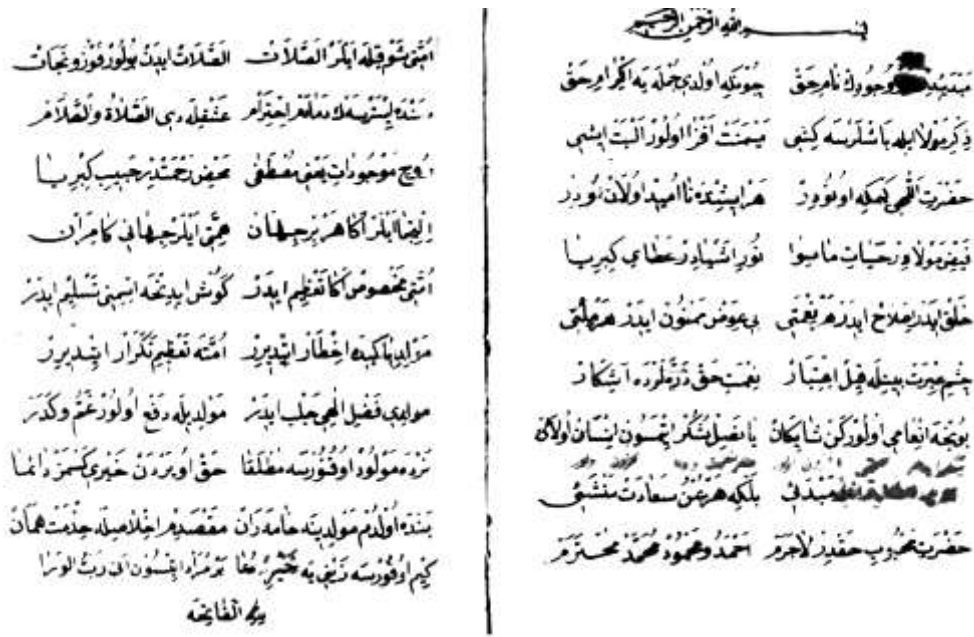 بسم الله الرحمن الرحيم
وجودك نام حق جونكه اولدى جمله يه اكرام حق
ذكر مولا ايله باشلرسه كشى ميمنت افزا اولور البت ايشى
حضرت الهى كيمكه اونودر هر ايشنده نا اميد اولان بودر
فيض مولادر حيات ماسوا نور اشيادر عطاى كبريا
خلق ايدر اصلاح ايدر هر نعمتى بى عوض ممنون ايدر هر ملتى
چشم عبرت قيل اعتبار نعمت حق ذره لرده آشكار
بونجه انعامى اولوركن شايكان يا نصل شكر ايتمسون انسان اولان
مبدئى بلكه هر سعادت منشئى
حضرت محبوب حقدر لاجرم احمد و محمود محمد محترم
امتى شوقله ايلر الصلات الصلات ايدن بولور فوز و نجات
سنده ايسترسه ك احترام عشقله دى الصلاة والسلام
روح موجودات يعنى مصطفى محض رحمتدر حبيب كبريا
التجا ايلر اكا هر بر جهان همتى ايلر جهانى كامران
امتى مخصوص اكا تعظيم ايدر كوش ايدنجه اسمنى تسليم ايدر
مولد پاكيده اخطار ايتديرر امته تعظيم تكرار ايتديرر
مولدى فضل الهى جلب ايدر مولد ايله دفع اولور غم و كدر
نرده مولود اوقورسه مطلقا حق او يردن خيرى كسمز دائما
بنده اولدم مولدينه خامه ران مقصدم اخلاصله خدمت همان
كيم اوقورسه دعا بر مراد ايتسون انى رب الورا
الفاتحه